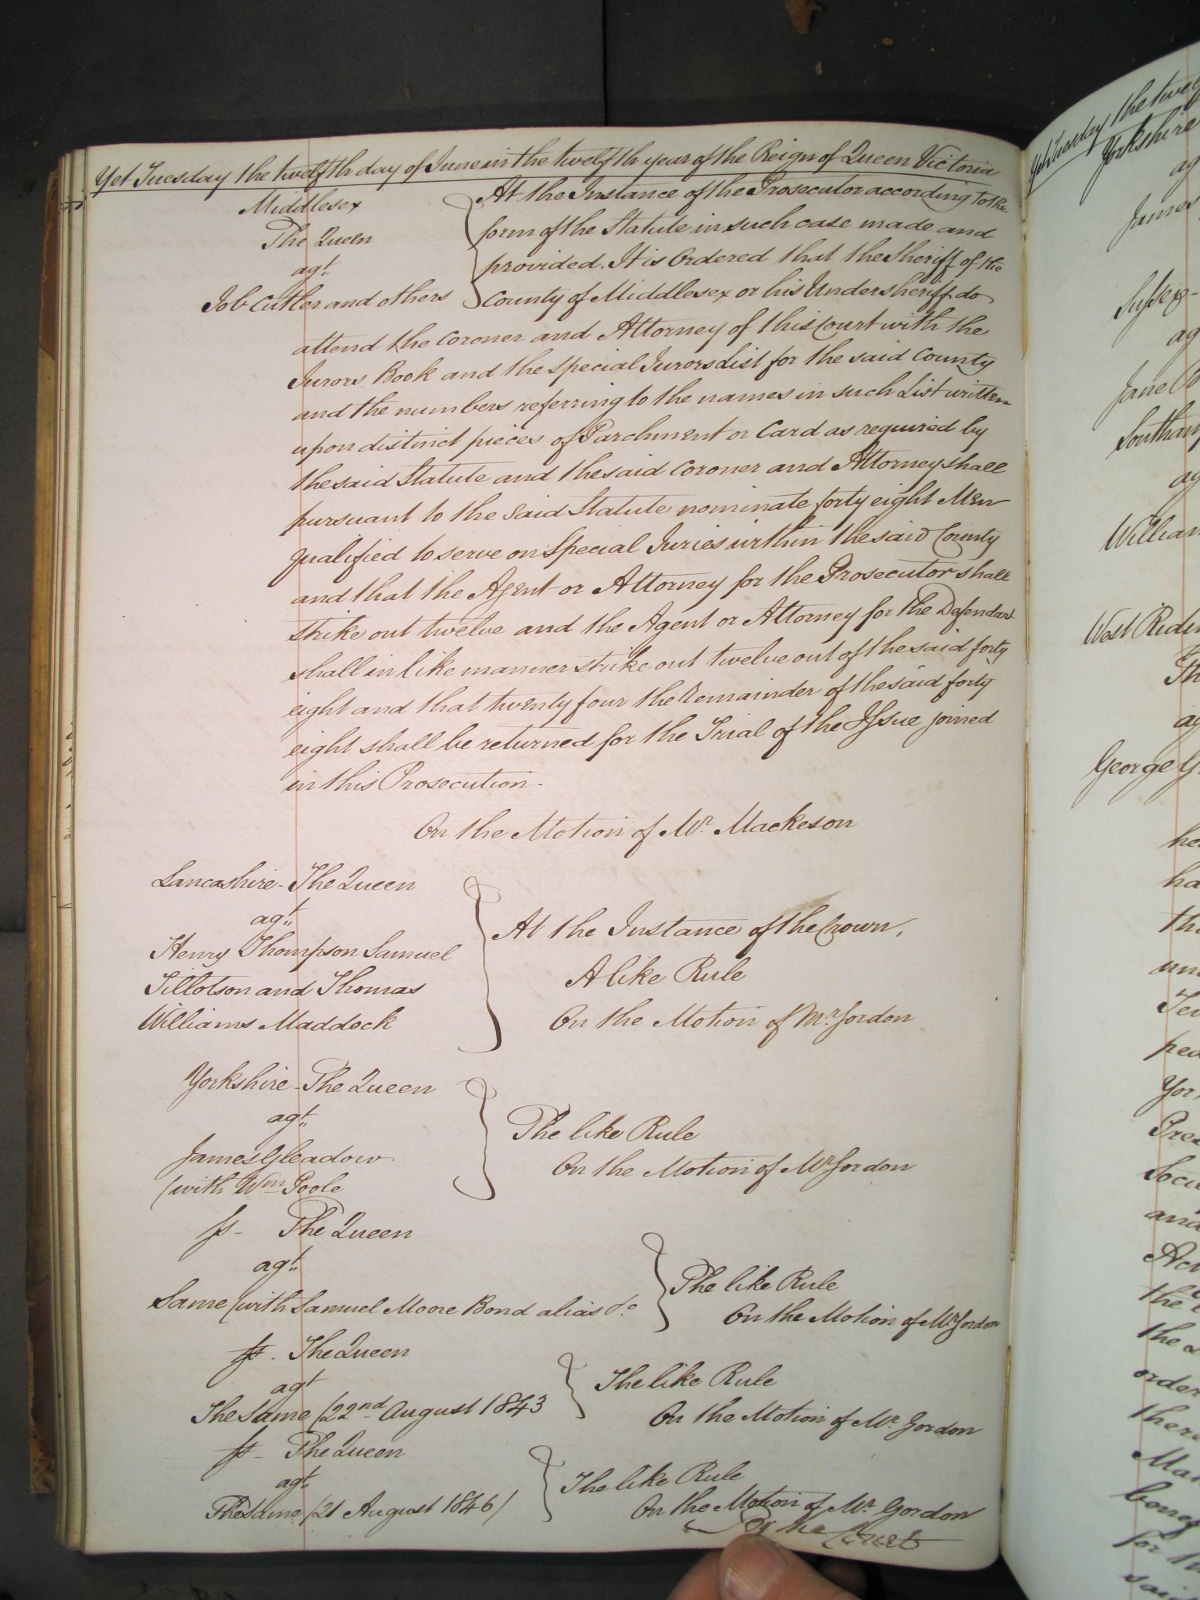 Yet Tuesday the twelfth day of June in the twelfth year of the Reign of Queen Victoria
Middlesex
The Queen
agt.
Job Cutler and others
At the Instance of the Prosecutor according to the
form of the Statute in such case made and
provided. It is Ordered that the Sheriff of the
County of Middlesex or his Undersheriff do
attend the Coroner and Attorney of this Court with the
Jurors Book and the Special Jurors List for the said County
and the numbers referring to the names in such List written
upon distinct pieces of Parchment or Card as required by
the said Statute and the said Coroner and Attorney shall
pursuant to the said Statute nominate forty eight Men
qualified to serve on Special Juries within the said County
and that the Agent or Attorney for the Prosecutor shall
strike out twelve and the Agent or Attorney for the Defendant
shall in like manner strike out twelve out of the said forty
eight and that twenty four the Remainder of the said forty
eight shall be returned for the Trial of the Issue joined
in this Prosecution.
On the Motion of Mr. Mackeson
Lancashire - The Queen
agt.
Henry Thompson Samuel
Tillotson and Thomas
Williams Maddock
At the Instance of the Crown,
A like Rule
On the Motion of Mr. Gordon
Yorkshire - The Queen
agt.
James Gleadow
(with Wm Poole
The like Rule
On the Motion of Mr Gordon
Ss - The Queen
agt.
Same (with Samuel Moore Bond alias &c
The like Rule
On the Motion of Mr Gordon
Ss - The Queen
agt
The Same (22nd August 1843
The like Rule
On the Motion of Mr. Gordon
Ss - The Queen
agt.
The Same (21 August 1846)
The like Rule
On the Motion of Mr. Gordon
By the Court
Yet Tuesday the twel
Yorkshire
ag
James
Sussex -
ag
Jane
Southam
ag
William
West Ridi
Th
ag
George